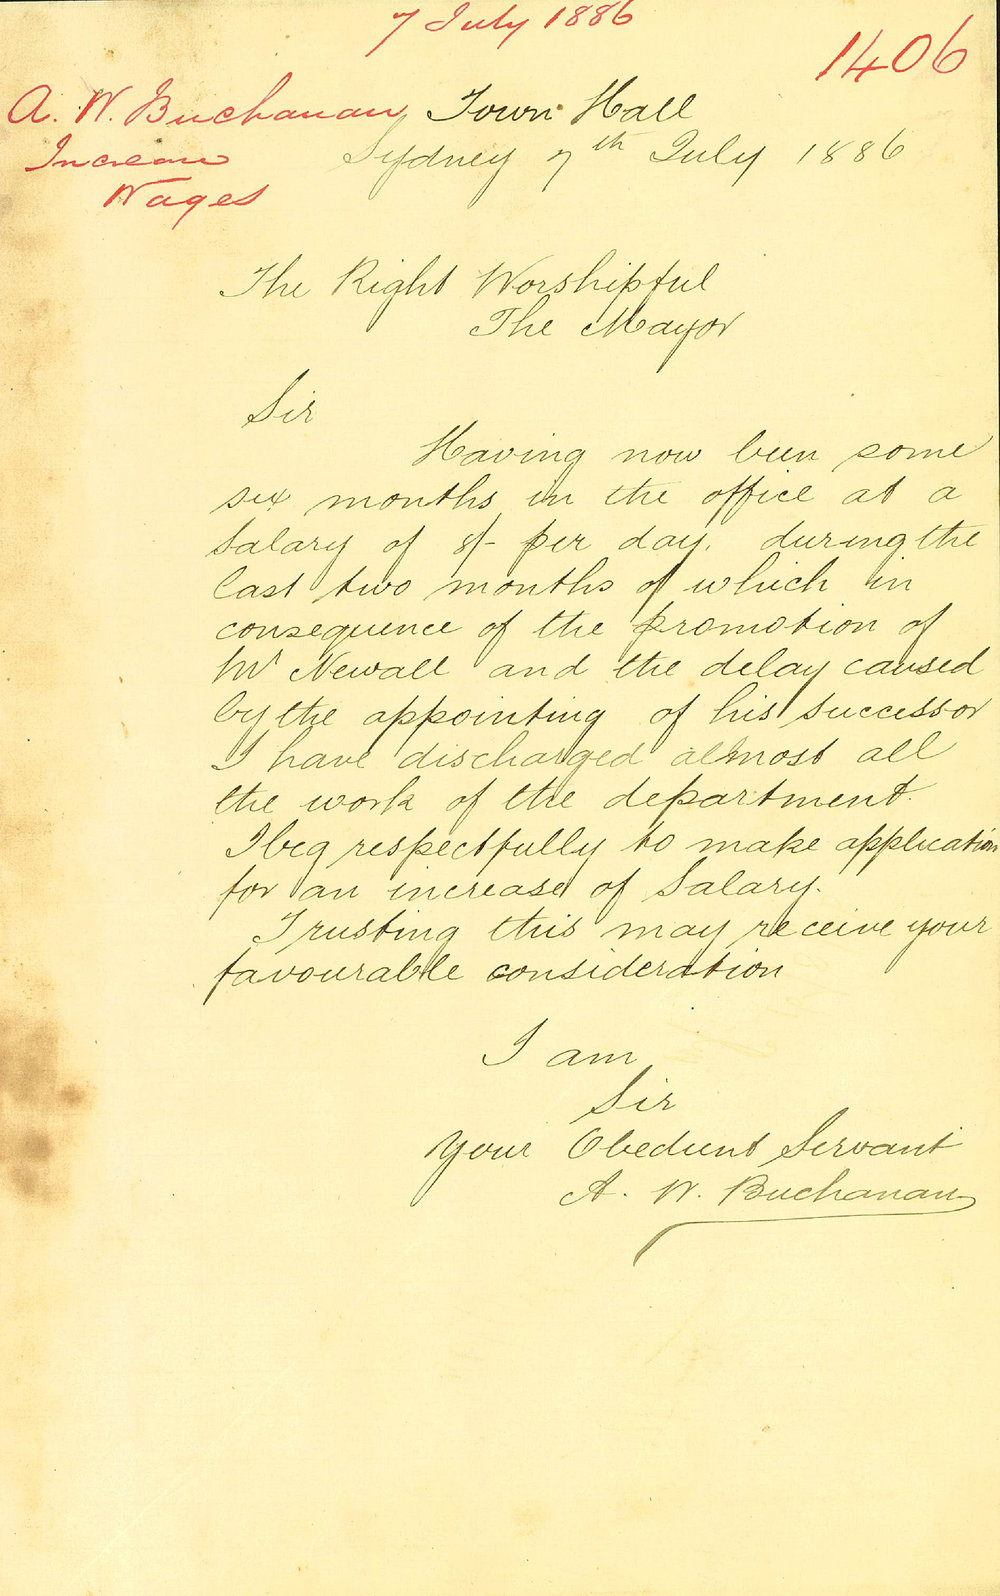 7 July 1886
1406
A. W. Buchanan
Increase
Wages
Town Hall
Sydney 7th July 1886
The Right Worshipful
The Mayor
Sir
Having now been some
six months in the office at a
salary of 8/- per day, during the
last two months of which in
consequence of the promotion of
Mr Newall and the delay caused
by the appointing of his successor
I have discharged almost all
the work of the department.
I beg respectfully to make application
for an increase of Salary.
Trusting this may receive your
favourable consideration
I am
Sir
Your Obedient Servant
A. W. Buchanan